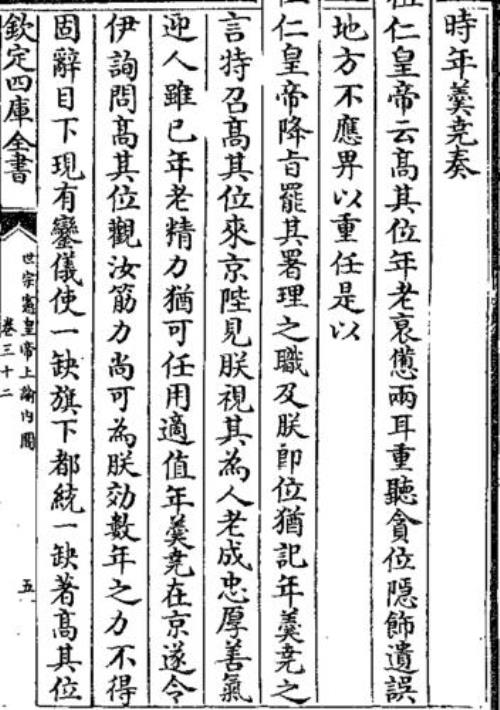 時年羹堯奏
祖仁皇帝云髙其位年老衰憊兩耳重聽貪位隠飾遺誤
地方不應畀以重任是以
仁皇帝降㫖罷其署理之職及朕即位猶記年羹堯之
言特召髙其位來京陛見朕視其為人老成忠厚善氣
迎人雖已年老精力猶可任用適值年羹堯在京遂令
伊詢問髙其位觀汝筋力尚可為朕効數年之力不得
固辭目下現有鑾儀使一缺旗下都統一缺著髙其位
欽定四庫全書
世宗憲皇帝上諭内閣
卷三十二
五